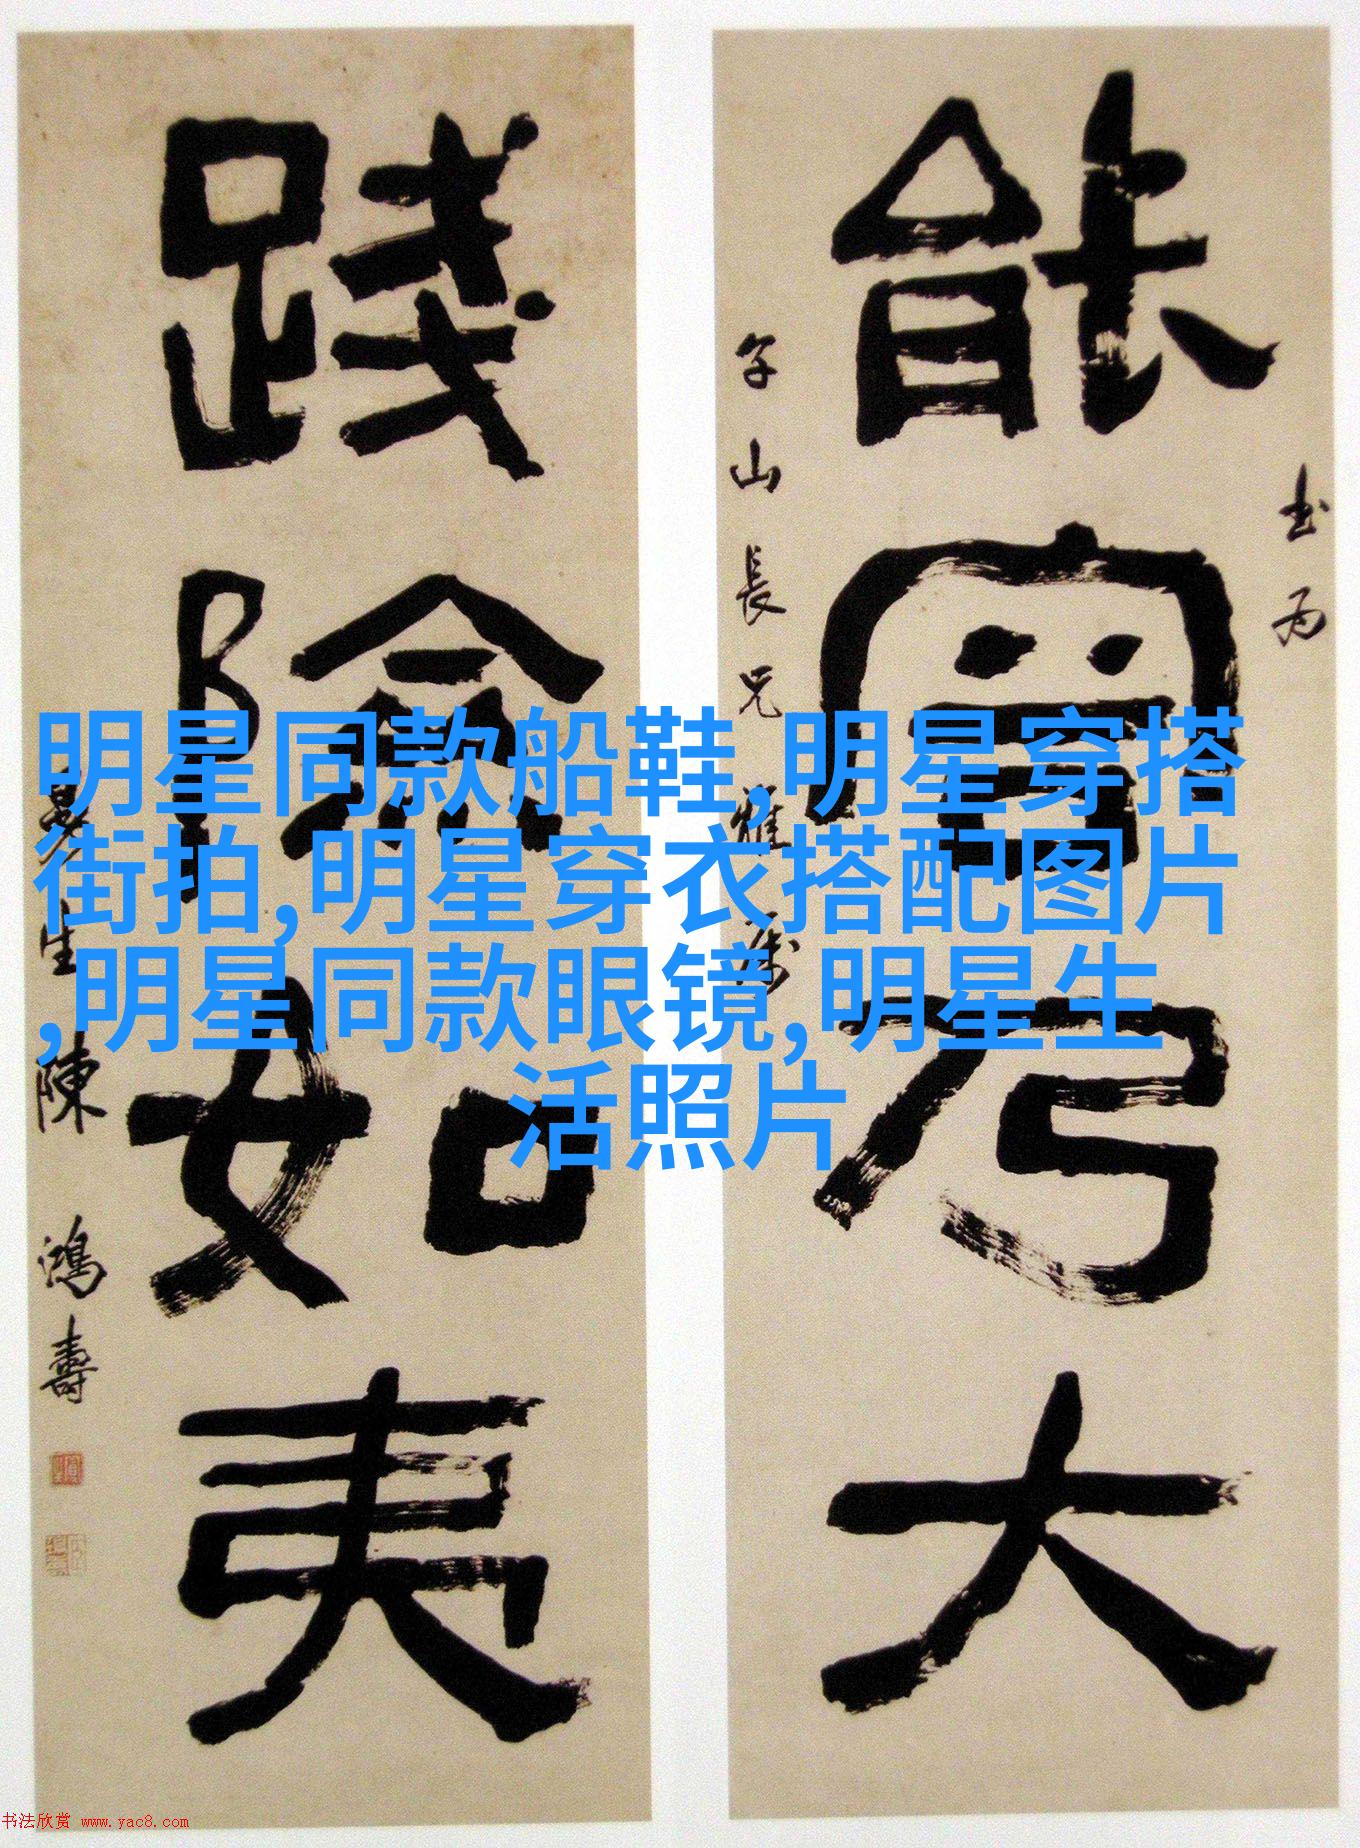 書為
能容乃大
山長兄雅屬
踐險如夷
曼生陳鴻壽
明星同款船鞋,明星穿搭
街拍,明星穿衣搭配图片
,明星同款眼镜,明星生
活照片
书法欣赏 www.yac8.com